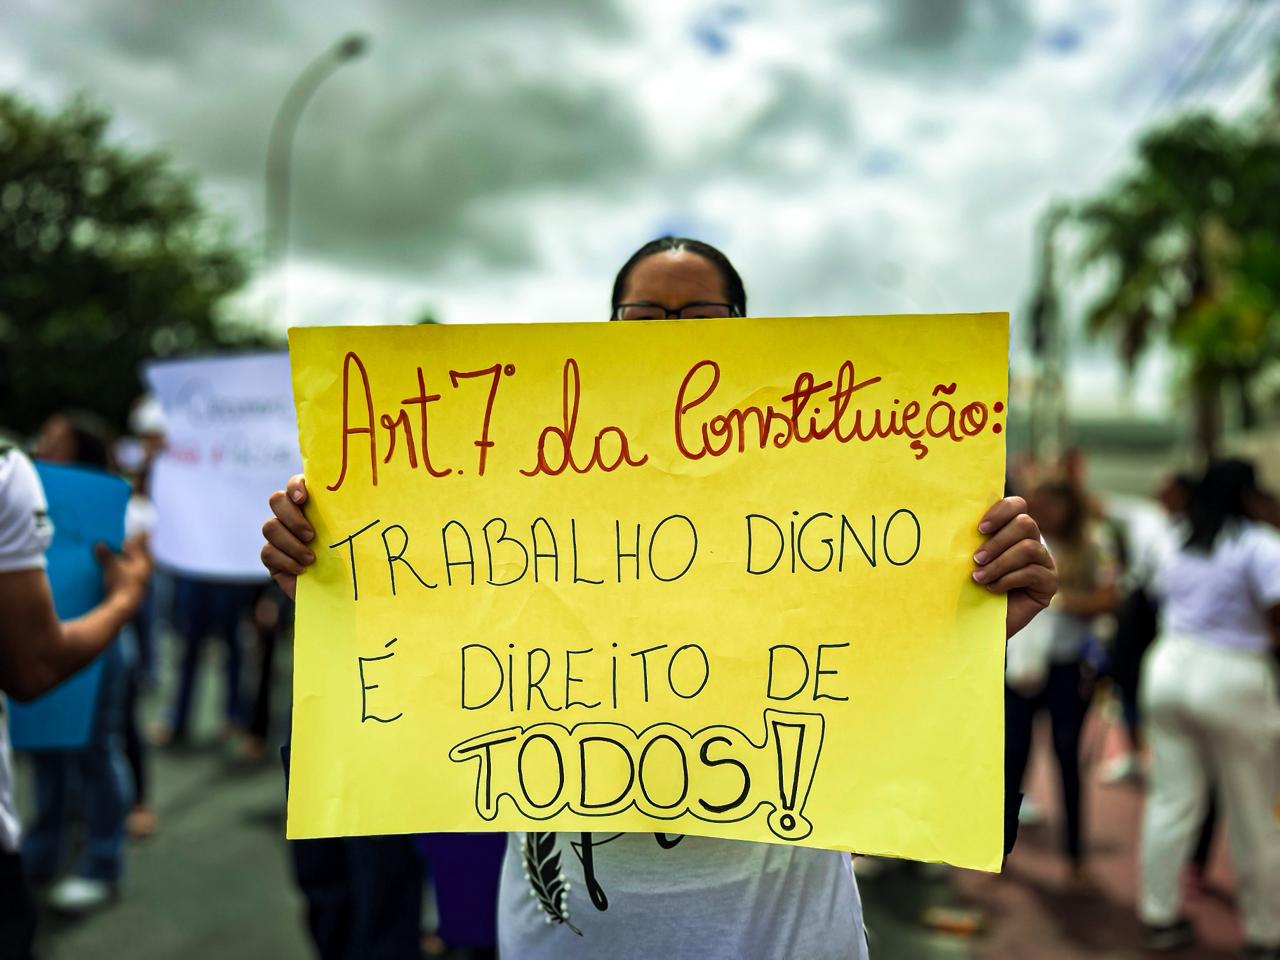 Art. 7° da Constituição:
TRABALHO DiGNO
É DiREiTO DE
TODOS!